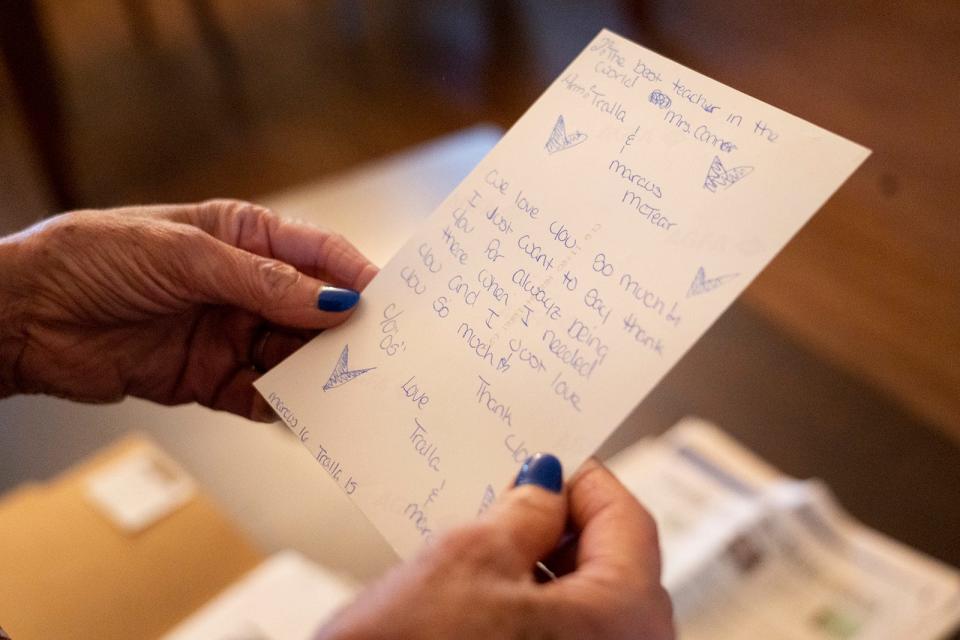 The best teacher in the
World Mrs. Conner
Tralla
&
marcus
mcTear
We love you so much
I Just want to Say thank
you for always being
there when I needed
you and I Just love
you so much
Thank
you
Love
Tralla
&
marc
marcus 16 Tralla 15